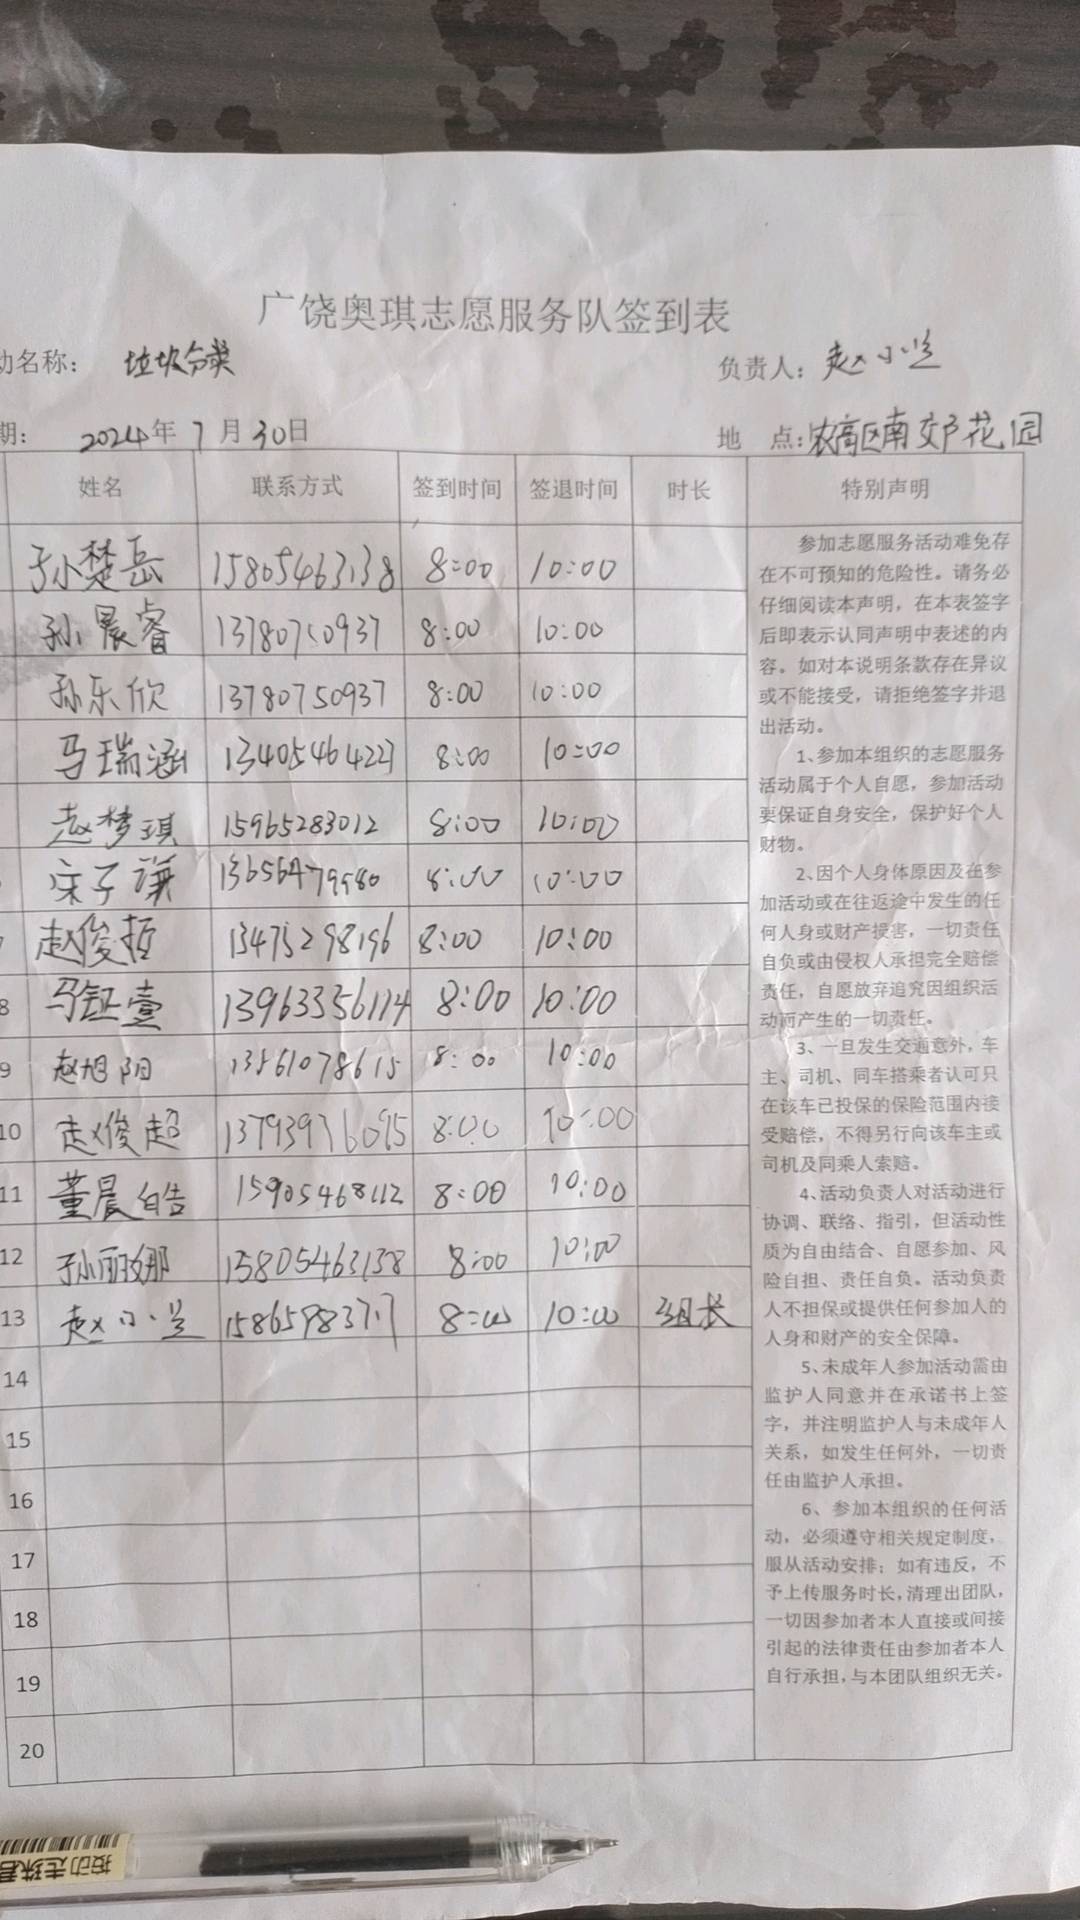 广饶奥琪志愿服务队签到表
动名称： 垃圾分类 负责人： 赵小兰
期： 2024年 7月 30日 地 点： 农高区南郊花园
姓名 联系方式 签到时间 签退时间 时长 特别声明
孙楚岳 15805463138 8:00 10:00
孙晨睿 13780750937 8:00 10:00
孙乐欣 13780750937 8:00 10:00
马瑞涵 13405464227 8:00 10:00
赵梦琪 15965283012 8:00 10:00
宋子谦 13656479580 8:00 10:00
7 赵俊哲 13475298196 8:00 10:00
8 马钲壹 13963356114 8:00 10:00
9 赵旭阳 13561078615 8:00 10:00
10 赵俊超 13793976095 8:00 10:00
11 董晨皓 15905468112 8:00 10:00
12 孙丽娜 15805463138 8:00 10:00
13 赵小兰 15865983717 8:00 10:00 组长
14
15
16
17
18
19
20
参加志愿服务活动难免存
在不可预知的危险性。请务必
仔细阅读本声明，在本表签字
后即表示认同声明中表述的内
容。如对本说明条款存在异议
或不能接受，请拒绝签字并退
出活动。
1、参加本组织的志愿服务
活动属于个人自愿，参加活动
要保证自身安全，保护好个人
财物。
2、因个人身体原因及在参
加活动或在往返途中发生的任
何人身或财产损害，一切责任
自负或由侵权人承担完全赔偿
责任，自愿放弃追究因组织活
动而产生的一切责任。
3、一旦发生交通意外，车
主、司机、同车搭乘者认可只
在该车已投保的保险范围内接
受赔偿，不得另行向该车主或
司机及同乘人索赔。
4、活动负责人对活动进行
协调、联络、指引，但活动性
质为自由结合、自愿参加、风
险自担、责任自负。活动负责
人不担保或提供任何参加人的
人身和财产的安全保障。
5、未成年人参加活动需由
监护人同意并在承诺书上签
字，并注明监护人与未成年人
关系，如发生任何外，一切责
任由监护人承担。
6、参加本组织的任何活
动，必须遵守相关规定制度，
服从活动安排；如有违反，不
予上传服务时长，清理出团队，
一切因参加者本人直接或间接
引起的法律责任由参加者本人
自行承担，与本团队组织无关。
按动走珠